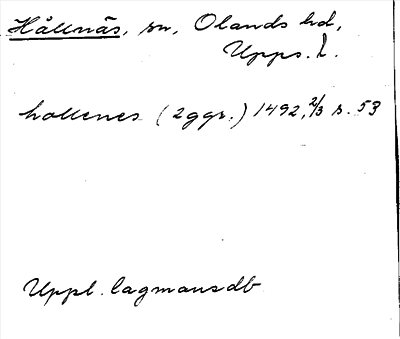 Hållnäs, sn, Olands hd,
Upps. l.
hollenes (2ggr.) 1492, 2/3 s. 53
Uppl. lagmansdb